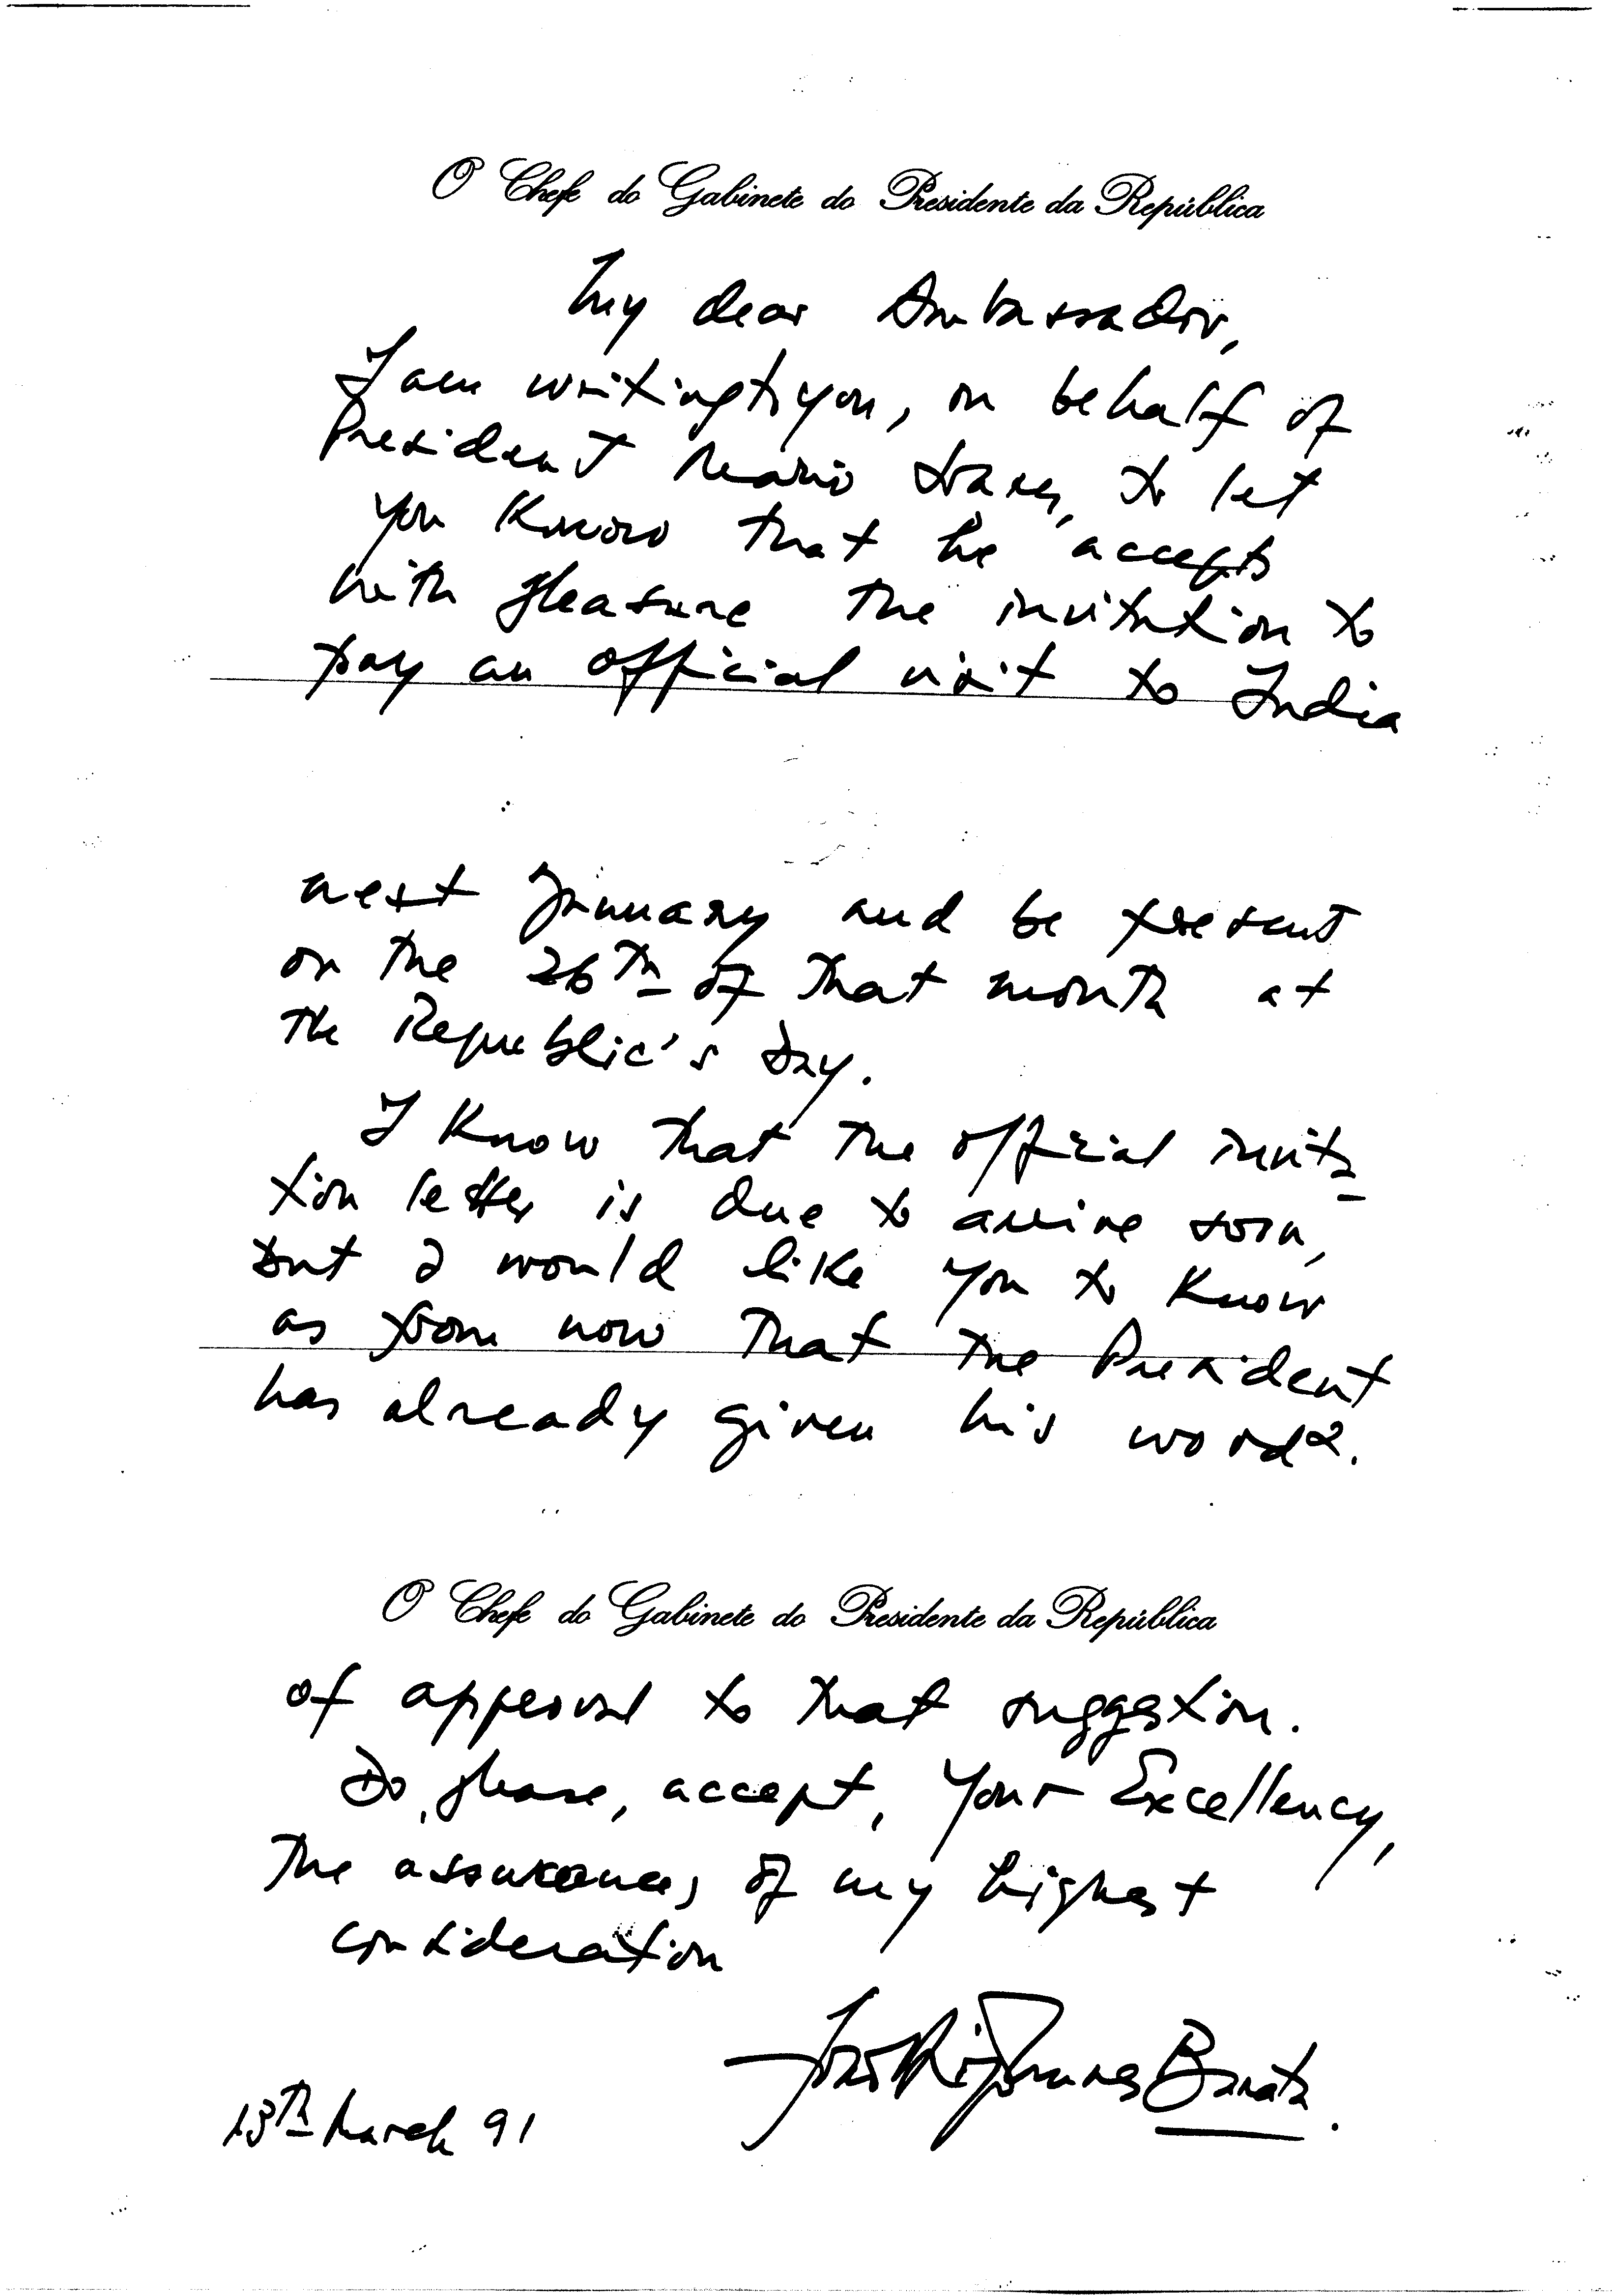 O Chefe do Gabinete do Presidente da República
My dear Ambassador,
I am writing to you, on behalf of
President Mario Soares, to let
you know that he accepts
with pleasure the invitation to
pay an official visit to India
next January and be present
on the 26th of that month at
the Republic's Day.
I know that the official invita-
tion letter is due to arrive soon,
but I would like you to know
as from now that the President
has already given his word
O Chefe do Gabinete do Presidente da República
of approval to that suggestion.
Do, please, accept, Your Excellency,
the assurances of my highest
consideration
João Barata
13th March 91